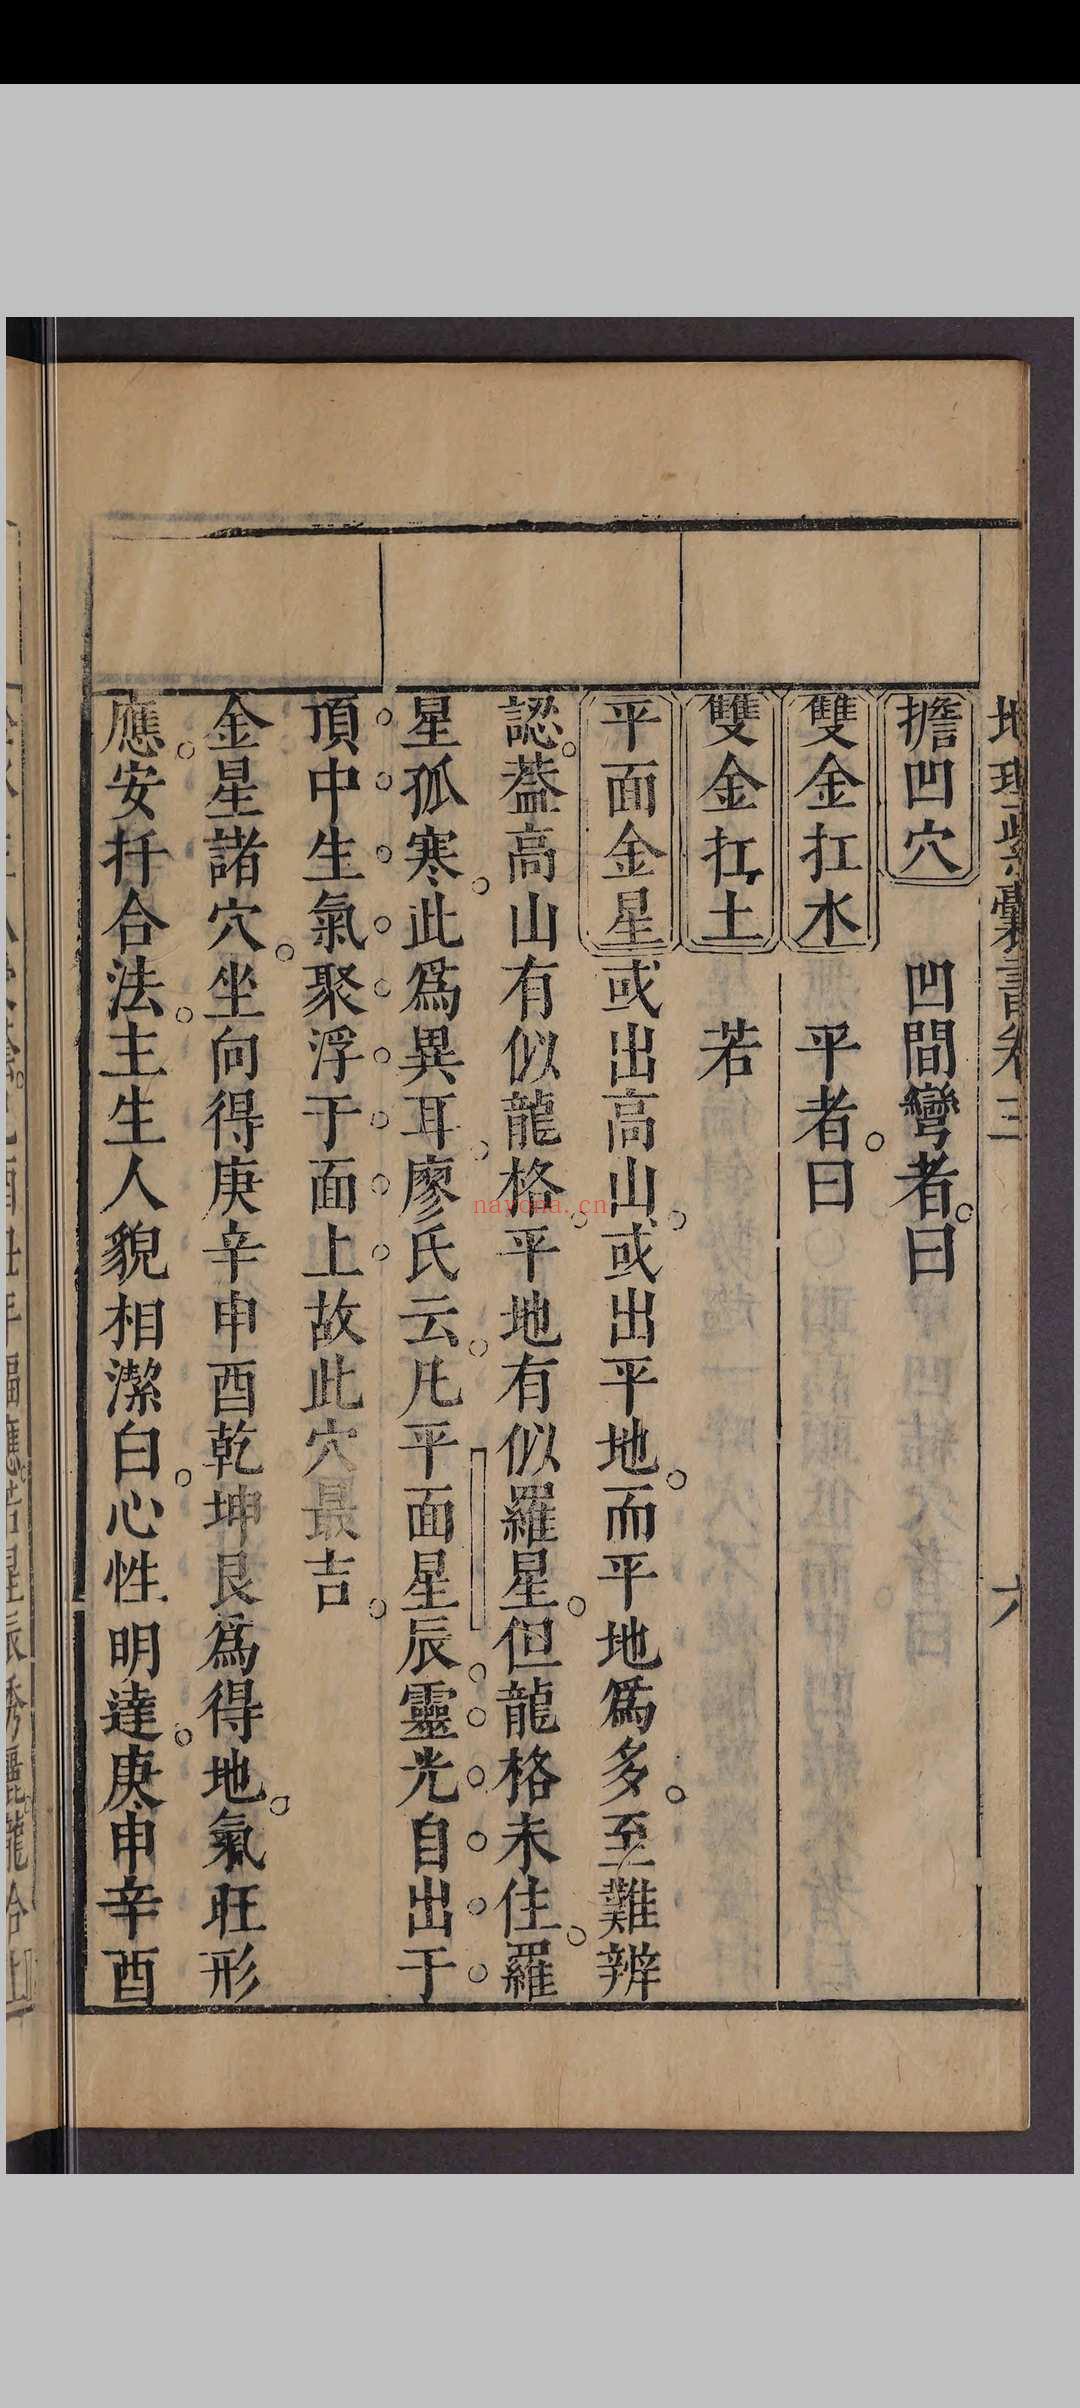 地理紫囊書卷三 六
擔凹穴 凹間彎者曰
雙金扛水 平者曰
雙金扛土 若
平面金星或出高山或出平地而平地爲多至難辨
認葢高山有似龍格平地有似羅星但龍格未住羅
星孤寒此爲異耳廖氏云凡平面星辰靈光自出于
頂中生氣聚浮于面上故此穴最吉
金星諸穴坐向得庚辛申酉乾坤艮爲得地氣旺形
應安扦合法主生人貌相潔白心性明達庚申辛酉
nayona.cn